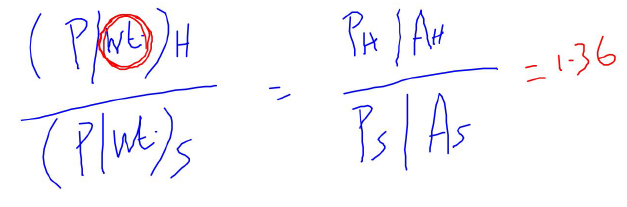 (P/wt.)H / (P/wt.)S = PH/AH / PS/AS = 1.36